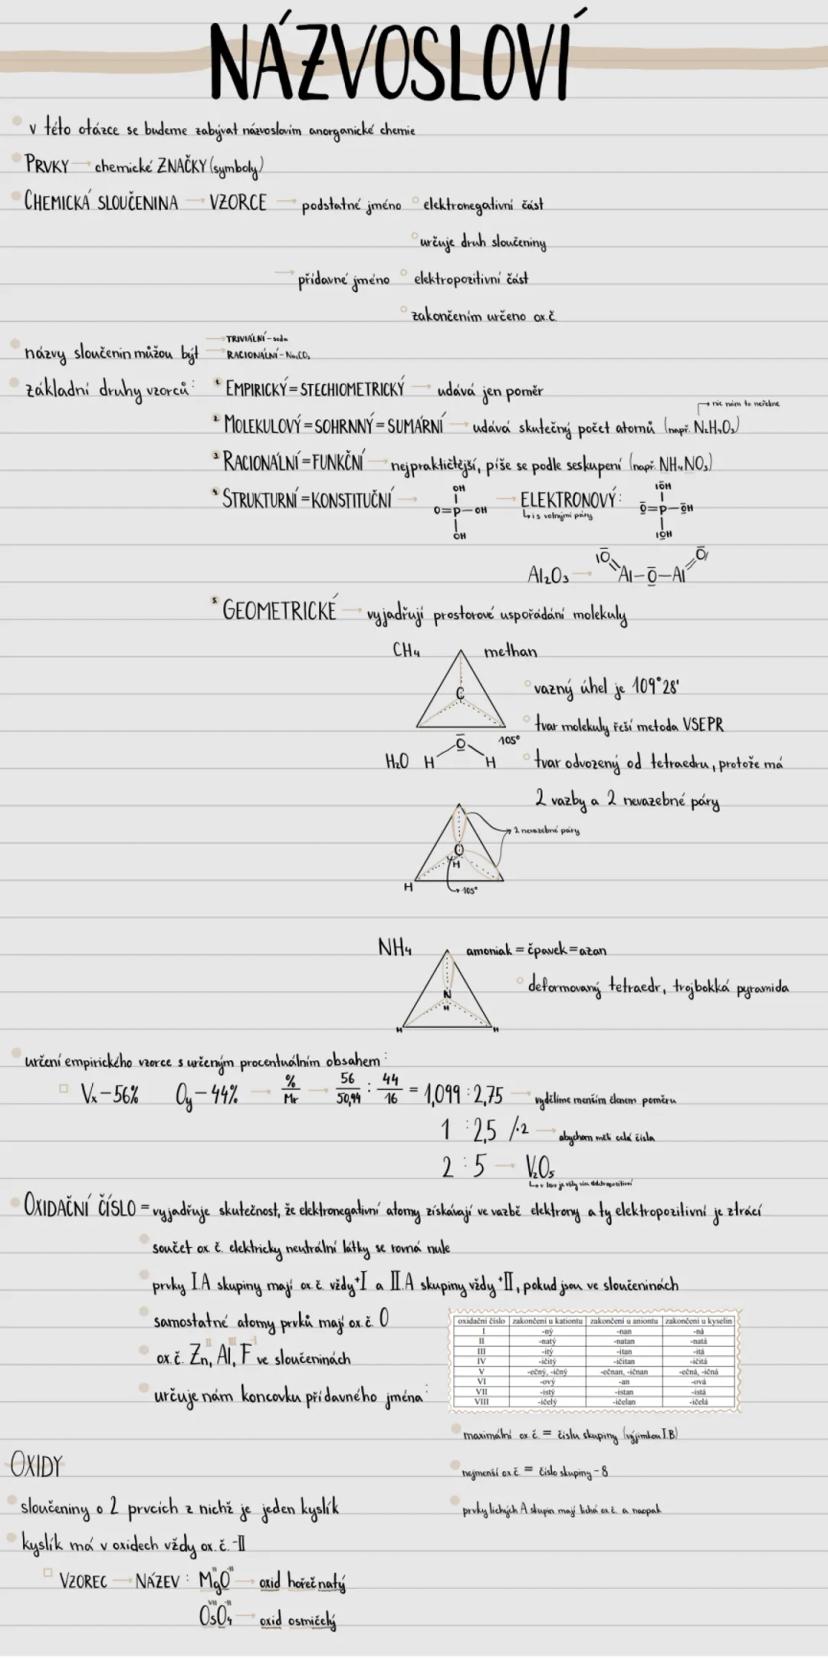 NÁZVOSLOVÍ
v této otázce se budeme zabývat názvoslovím anorganické chemie
PRVKY → chemické ZNAČKY (symboly)
CHEMICKÁ SLOUČENINA → VZORCE → podstatné jméno ○ elektronegativní část
○ určuje druh sloučeniny
→ přídavné jméno ○ elektropozitivní část
○ zakončením určeno ox.č.
názvy sloučenin můžou být → TRIVIÁLNÍ - soda
→ RACIONÁLNÍ - Na₂CO₃
základní druhy vzorců: 1. EMPIRICKÝ = STECHIOMETRICKÝ → udává jen poměr
2. MOLEKULOVÝ = SOHRNNÝ = SUMÁRNÍ → udává skutečný počet atomů (např. N₂H₄O₃) → nic nám to neřekne
3. RACIONÁLNÍ = FUNKČNÍ → nejpraktičtější, píše se podle seskupení (např. NH₄NO₃)
4. STRUKTURNÍ = KONSTITUČNÍ → OH O=P-OH OH → ELEKTRONOVÝ: IOH O=P-OH IOH
↳ i s volnými páry
Al₂O₃ → IO=Al-O-Al=O
5. GEOMETRICKÉ → vyjadřují prostorové uspořádání molekuly
CH₄ methan
C ○ vazný úhel je 109°28'
○ tvar molekuly řeší metoda VSEPR
H₂O H O H 105° ○ tvar odvozený od tetraedru, protože má
2 vazby a 2 nevazebné páry
→ 2 nevazebné páry
O
H
H → 105°
NH₄ amoniak = čpavek = azan
○ deformovaný tetraedr, trojboká pyramida
N
H
H H
určení empirického vzorce s určeným procentuálním obsahem:
Vₓ - 56% Oy - 44% → %/Mr → 56/50,94 : 44/16 = 1,099 : 2,75 → vydělíme menším členem poměru
1 : 2,5 /·2 → abychom měli celá čísla
2 : 5 → V₂O₅
OXIDAČNÍ ČÍSLO = vyjadřuje skutečnost, že elektronegativní atomy získávají ve vazbě elektrony a ty elektropozitivní je ztrácí
součet ox. č. elektricky neutrální látky se rovná nule
prvky I.A skupiny mají ox.č. vždy +I a II.A skupiny vždy +II, pokud jsou ve sloučeninách
samostatné atomy prvků mají ox.č. 0
ox.č. Zn^II, Al^III, F^-I ve sloučeninách
určuje nám koncovku přídavného jména:
oxidační číslo zakončení u kationtu zakončení u aniontu zakončení u kyselin
I -ný -nan -ná
II -natý -natan -natá
III -itý -itan -itá
IV -ičitý -ičitan -ičitá
V -ečný, -ičný -ečnan, -ičnan -ečná, -ičná
VI -ový -an -ová
VII -istý -istan -istá
VIII -ičelý -ičelan -ičelá
maximální ox.č. = číslu skupiny (výjimkou I.B)
nejmenší ox.č. = číslo skupiny - 8
prvky lichých A skupin mají lichá ox.č. a naopak
OXIDY
sloučeniny o 2 prvcích z nichž je jeden kyslík
kyslík má v oxidech vždy ox.č. -II
VZOREC → NÁZEV: MgO → oxid hořečnatý
OsO₄ → oxid osmičelý